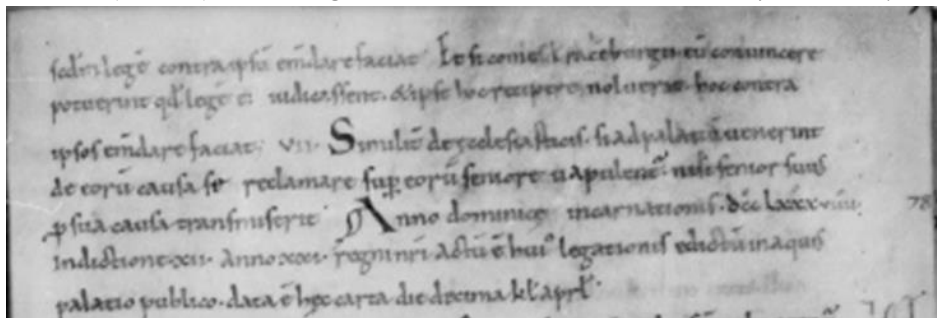 scdm legē contra ipsū em̄dare faciat Et si comes ł raceburgii eū conuincere
potuerint qđ legē ei iudicassent. & ipse hoc recipere noluerit. hoc contra
ipsos em̄dare faciat; VII. Similit̄ de ecclesiasticis. si ad palatiū uenerint
de eorū causa reclamare sup eorū seniore nisi senior suus
ꝓ sua causa transmiserit Anno dominicę incarnationis. dcc lxxx viiii 78
indictione xii. Anno xxi regni nr̄i Actū ē hui᾽ legationis edictū in aquis
palatio publico. data ē hęc carta die decima kł aprł.